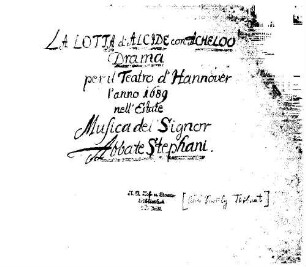 LA LOTTA d'ALCIDE con ACHELOO
Drama
per il Teatro d'Hannover
l'anno 1689
nell'Estate
Musica del Signor
Abbate Stephani.